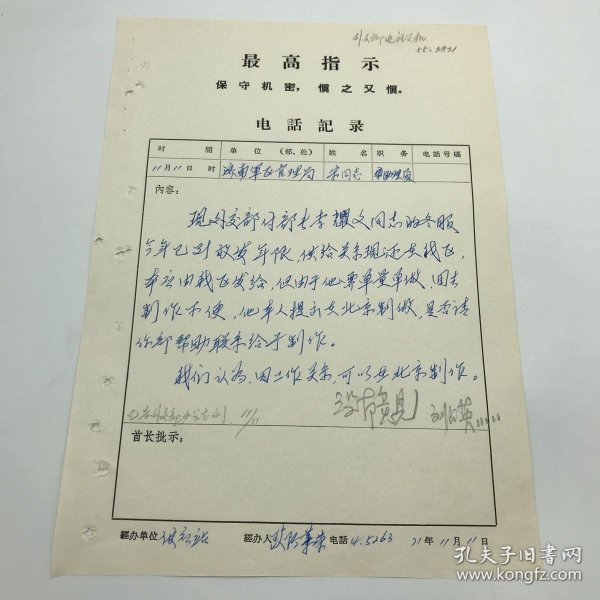 55.3831
最高指示
保守机密，慎之又慎。
电話記录
时 間 单位（部、处） 姓名 职务 电話号碼
11月11日 时 济南軍区管理局 宋同志 助理员
內容：
现外交部付部长李耀文同志的冬服
今年已到发放年限，供给关系现还在我区，
本应由我区发给，但由于他要单量单做，回去
制作不便，他本人提出在北京制做，是否请
你部帮助联系给予制作。
我们认为，因工作关系，可以在北京制作。
没有意见
11/11
首长批示：
經办单位 供应站 經办人 电話 4.5263 71年11月11日
孔夫子旧书网
www.kongfz.com